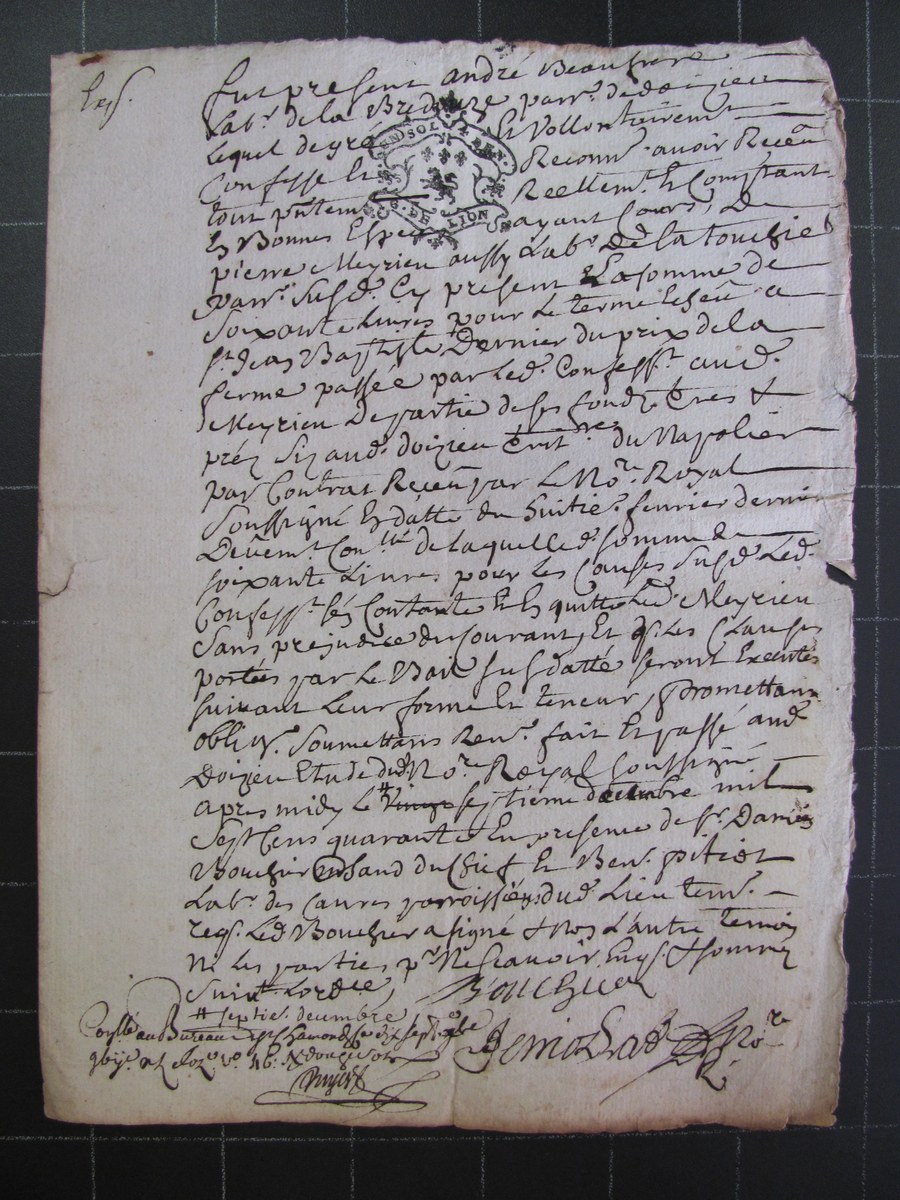 Exp.
fut present andré Beaufrere
Labr. de la Bredoure parr. de doizieu
Lequel de gre Et Vollontairemt
Confesse Et Reconnt. avoir Receu
tout pntemt Reellemt. Et Comptant
En Bonnes Especes ayant Cours, De
pierre Meyrieu aussy Labr. De la touchie
parr. susd. Cy present La somme de
soixante Livres pour Le terme Escheu a
st. Jean Baptiste Dernier du prix de la
ferme passée par Led. Confesst. aud.
Meyrieu De partie de ses fonds, terres &
préz siz aud. doizieu du Napolier
par Contrat Receu par Le Nore. Royal
soussigné En datte du huitie. fevrier dernier
Devemt. Conlé. de laquelle d. somme de
soixante Livres pour les Causes susd. Led.
Confesst. s'es Contante Et En quitte Led. Meyrieu
sans prejudice du Courant, Et q. Les Clauses
portées par Le Bail susdatté seront Executés
suivant Leur forme Et teneur, promettant
oblign. soumettans Renn. fait Et passé aud.
Doizieu Etude dud. Nore. Royal soussigné
apres midy Le # vingt septieme decembre mil
sept Cens quarante En presence de sr. Damien
Bouchier Et Ben. pitiot
Labr. des Caures parroissiens dud. Lieu temt.
reqs. Led. Bouchier a signé & Non L'autre temoin
Ni Les parties pr. Ne scavoir Enqs. & sommés
suivt. Lordce.
Bouchier
# septie. decembre
Conllé au Bureau de St Chamond Ce
R. douze sols
Nore.
EN SOL 4. DEN.
G. DE LION